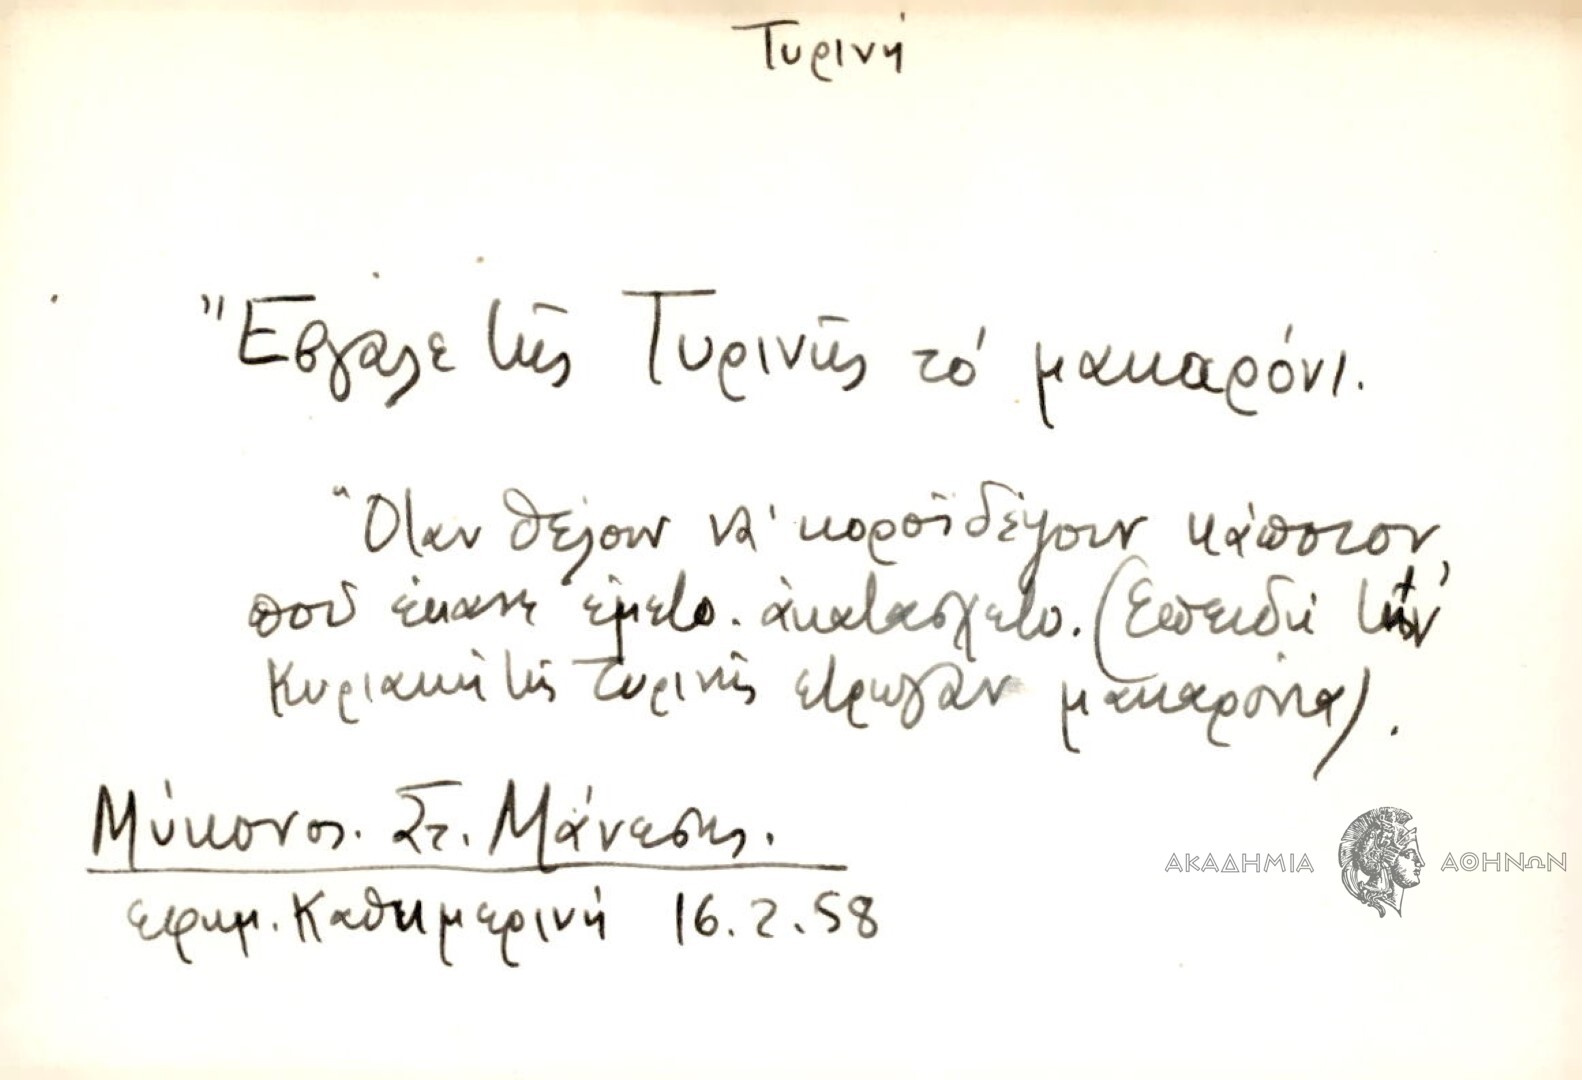 Τυρινή
Ἔβγαλε τῆς Τυρινῆς τό μακαρόνι.
Ὅταν θέλουν νά κοροϊδέψουν κάποιον
πού ἔκανε ἐμετό ἀκατάσχετο. (Ἐπειδή τήν
Κυριακή τῆς Τυρινῆς ἔτρωγαν μακαρόνια).
Μύκονος. Στ. Μάνεσης.
εφημ. Καθημερινή 16.2.58
ΑΚΑΔΗΜΙΑ ΑΘΗΝΩΝ